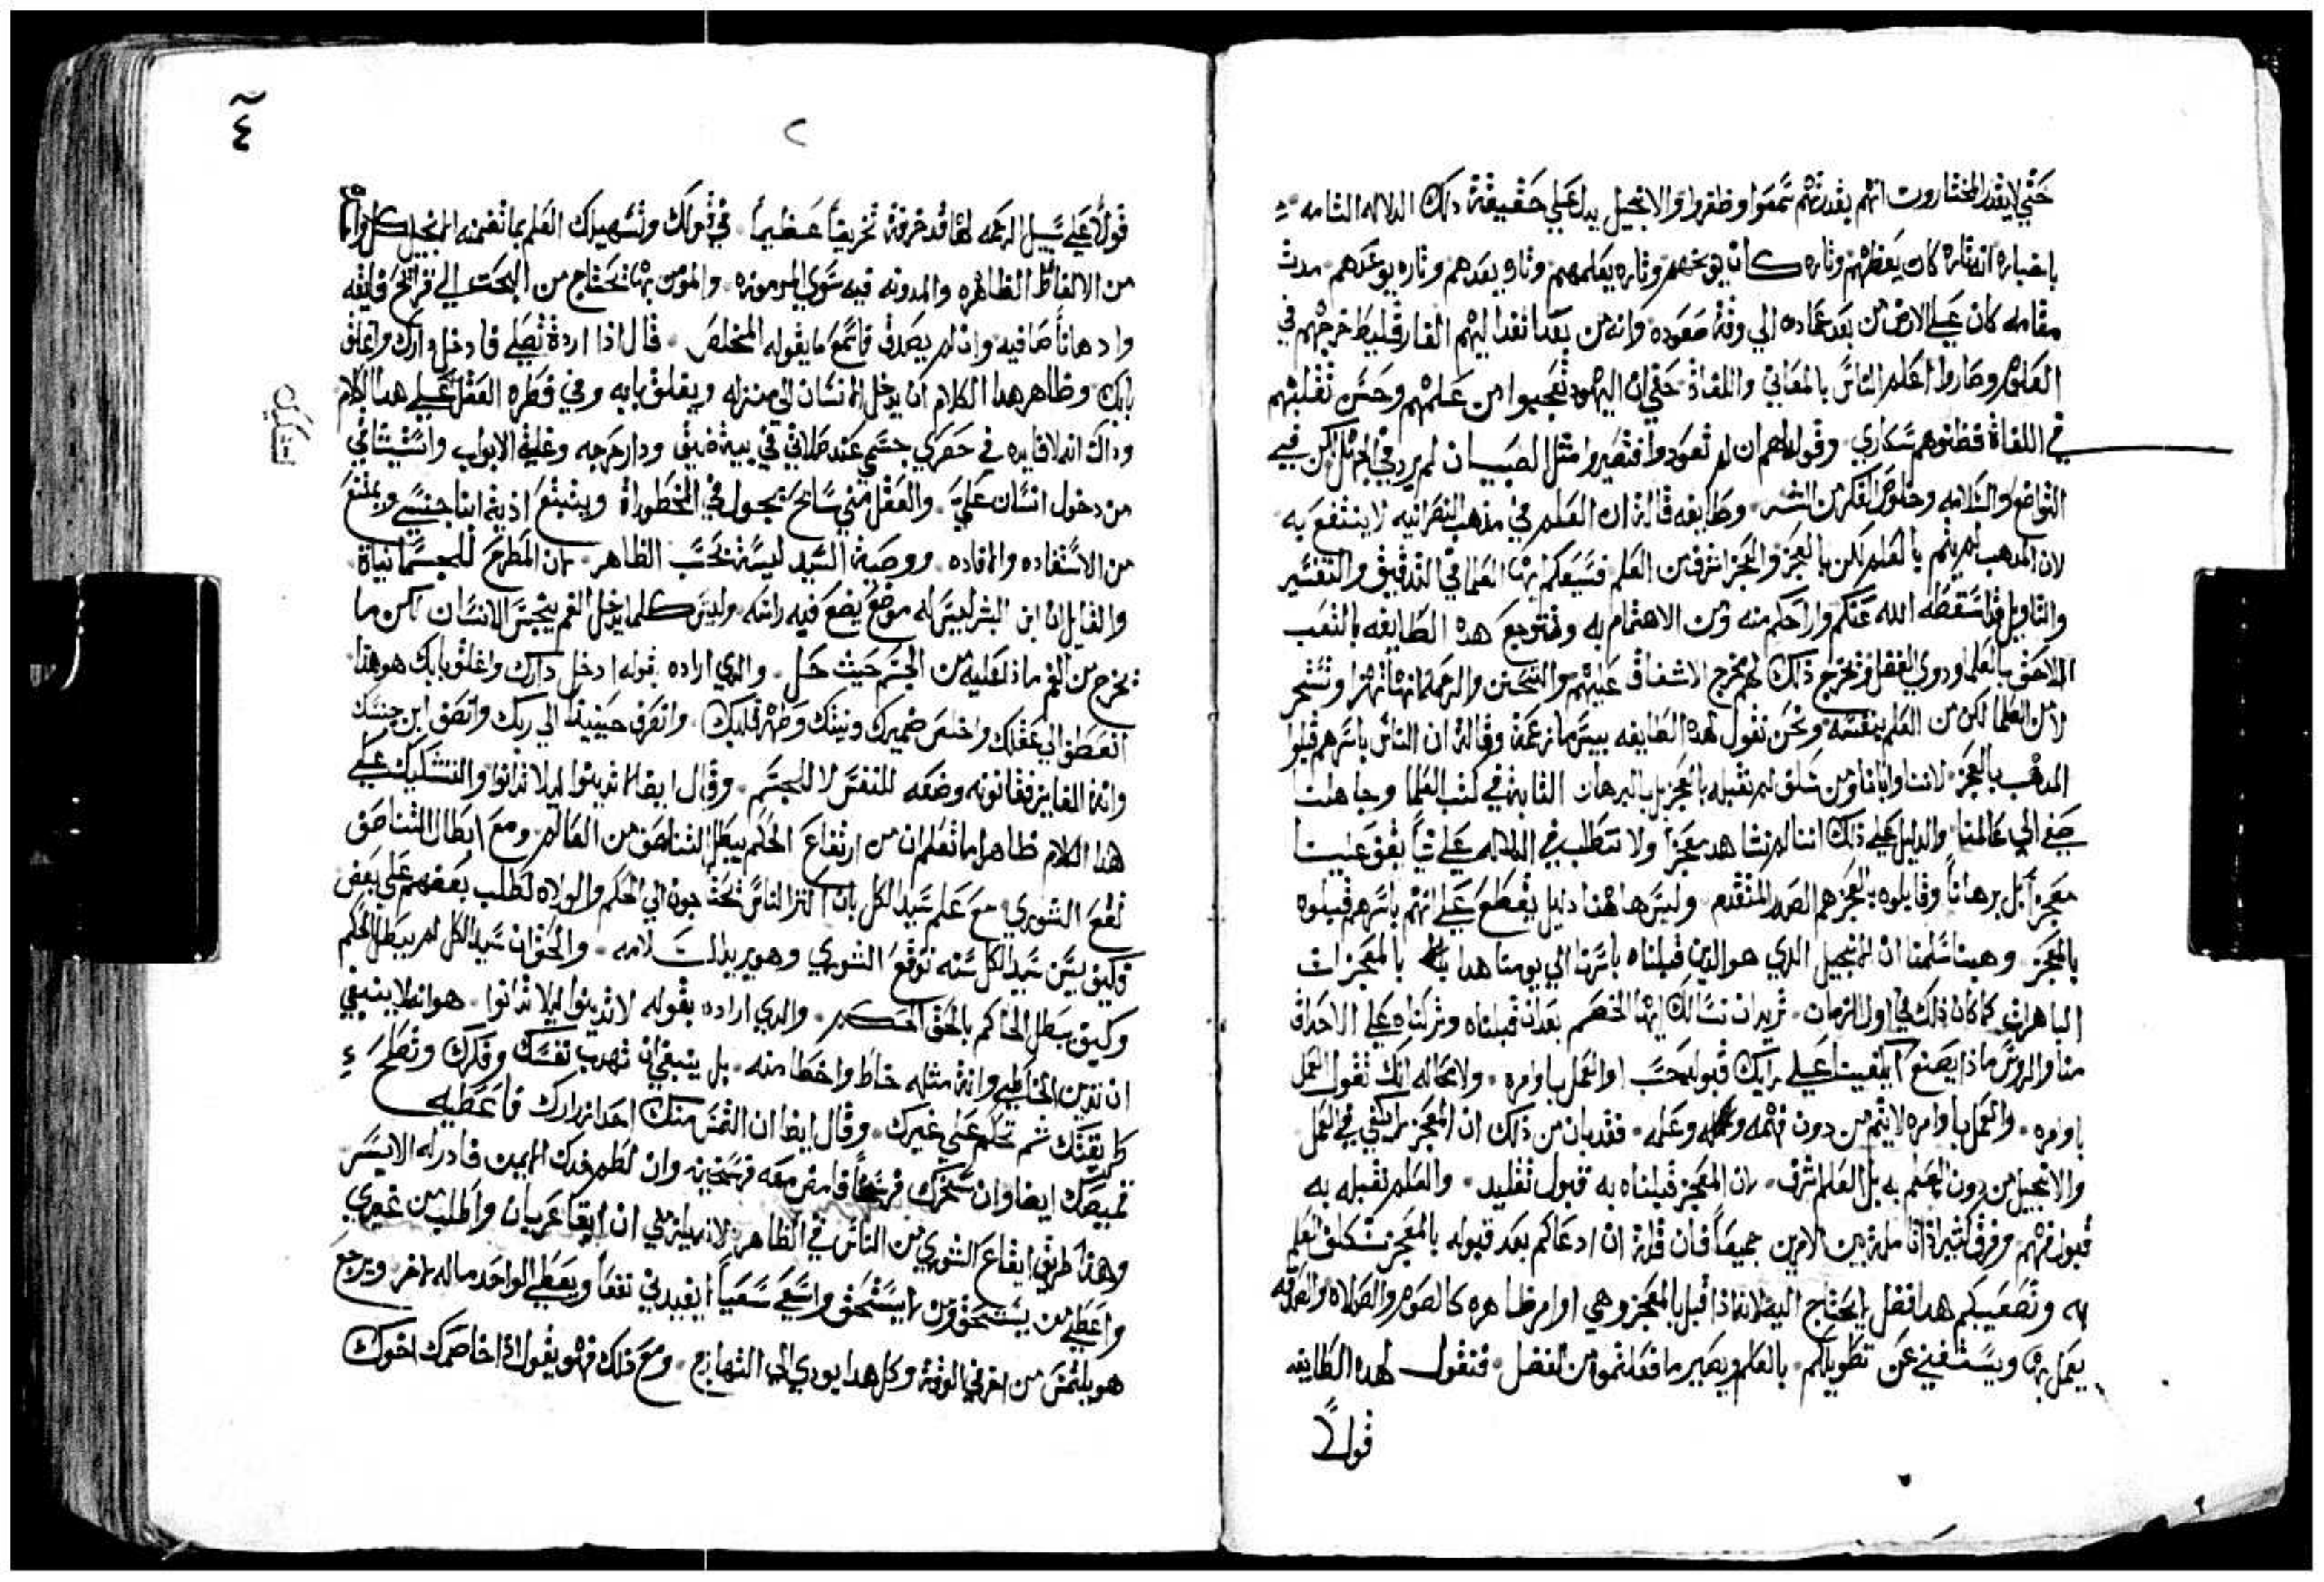 حتي لا يقدر المختارون انهم بقدرتهم سمعوا وظفروا والانجيل يدل علي حقيقة ذلك الدلاله التامه
باخباره انه تاره كان يعظهم وتاره كان يوبخهم وتاره يعلمهم وتاره يعدهم وتاره يوعدهم مدت
مقامه كان علي الارض من بعد عماده الي وقت صعوده وانه من بعد انفد اليهم الفارقليط خرجهم في
العلوم وصاروا اعلم الناس بالمعاني واللغاة حتي ان اليهود تعجبوا من علمهم وحسن تقلبهم
في اللغاة فظنوهم سكاري وقوله لهم ان لم تعودوا فتصيروا مثل الصبيان لم يرد في الجهل لكن في
التواضع والسلامه وخلوص الفكر من الشر وطايفه قالة ان العلم في مدهب النصرانيه لا ينتفع به
لان المدهب لم يتم بالعلم لكن بالمعجز والمعجز اشرف من العلم فسيعكم ايها العلما في التدقيق والتفسير
والتاويل قد اسقطه الله عنكم واراحكم منه ومن الاهتمام به وتتوجع هده الطايفه بالتعب
اللاحق بالعلما ودوي العقل وتخرج ذلك لهم مخرج الاشفاق عليهم والتحنن والرحمه لانها تهزا وتسخر
لا من العلما لكن من العلم بنفسه ونحن نقول لهده الطايفه بيس ما زعمة وقالة ان الناس باسرهم قبلوا
المدهب بالمعجز لاننا واباينا ومن سلف لم نقبله بالمعجز بل بالبرهان الثابت في كتب العلما وجاهلنا
صغي الي عالمنا والدليل علي ذلك اننا لم نشاهد معجزا ولا نتطلب في الدلاله علي شيا يقف علينا
معجزا بل برهانا وقابلوه بالمعجز هم الصدر المتقدم وليس هاهنا دليل يقطع علي انهم باسرهم قبلوه
بالمعجز وهبنا سلمنا ان الانجيل الدي هو الدين قبلناه باسرنا الي يومنا هدا بالمعجزات
الباهرات كما كان ذلك في اول الزمان نريد ان نسالك ايها الخصم بعد ان قبلناه وتركناه علي الاحداق
منا والروس ماذا يصنع ايكفينا علي رايك قبوله حسب او العمل باوامره ولا محاله انك تقول العمل
باوامره والعمل باوامره لا يتم من دون فهمه وعلمه فقد بان من ذلك ان المعجز لا يكفي في العمل
والانجيل من دون العلم به بل العلم اشرف لان المعجز قبلناه به قبول تقليد والعلم نقبله به
قبول فهم وفرق كثير اذا تاملته بين الامرين جميعا فان قلة ان ادعاكم بعد قبوله بالمعجز تتكلف العلم
به وتصعيبكم هدا فضل لا يحتاج اليه لانه اذا قبل بالمعجز وهي اوامر ظاهره كالصوم والصلاه والصدقه
يعمل بها ويستغني عن تطويلكم بالعلم ويصير ما فعلتموه من الفضل فنقول لهده الطايفه
قولاً
٤
٢
قولاً علي سبيل الرحمه لها قد خرفة تخريفاً عظيماً في قولك وتسهيلك العلم بما تضمنه الانجيل
من الالفاظ الظاهره والمدونه فيه سوي المرموزه والمومن بها تحتاج من البحث الي قرايح فايقه
وادهاناً صافيه وان لم يصدق فاسمع ما يقوله المخلص قال اذا اردة تصلي فادخل دارك واغلق
بابك وظاهر هدا الكلام ان يدخل الانسان الي منزله ويغلق بابه وفي فطره العقل علي هدا الكلام
وداك انه لا فايده في حصري جسمي عند صلاتي في بيت ضيق ودار حرجه وغلق الابواب واستيثاقي
من دخول انسان علي والعقل مني سايح يجول في الخطوراة ويتبتغ اذية ابنا جنسي ويمتنع
من الاستفاده والافاده ووصية السيد ليسة بحسب الظاهر لان المطرح للجسمانياة
والقايل ان ابن البشر ليس له موضع يضع فيه راسه وليس كلما يدخل الفم ينجس الانسان لكن ما
يخرج من الفم ماذا عليه من الجسم حيث حل والدي اراده بقوله ادخل دارك واغلق بابك هو هدا
انعطف الي عقلك واخلص ضميرك ونيتك وطهر قلبك وانصرف حينيد الي ربك وانصف ابن جنسك
وانة الفايز فقانونه وضعه للنفس لا للجسم وقال ايضا لا تدينوا ليلا تدانوا والتشكيك علي
هدا الكلام ظاهر اما تعلم ان من ارتفاع الحكم يبطل التناصف من العالم ومع ابطال التناصف
تقع الشوري مع علم سيد الكل بان اكثر الناس يحتاجون الي الحكم والولاه لطلب بعضهم علي بعض
فكيف يسن سيد الكل سنه توقع الشوري وهو يريد السلامه والحق ان سيد الكل لم يبطل الحكم
وكيف يبطل الحاكم بالحق الحكم والدي اراده بقوله لا تدينوا ليلا تدانوا هو انه لا ينبغي
ان تدين الخاطي وانة مثله خاط واخطا منه بل ينبغي ان تهدب نفسك وفكرك وتصلح
طريقتك ثم تحكم علي غيرك وقال ايضا ان التمس منك احدا ازارك فاعطيه
قميصك ايضا وان سخرك فرسخاً فامض معه فرسخين وان لطم خدك الايمن فادر له الايسر
وهدا طريق ايقاع الشوري من الناس في الظاهر لانه يلزمني ان ابقا عريان واطلب من غيري
واعطي من يستحق ومن لا يستحق واسعي سعياً لا يفيدني نفعاً ويعطي الواحد ماله لاخر ويرجع
هو يلتمس من اخر في الوقت وكل هدا يودي الي التهارج ومع ذلك فهو يقول اذا خاصمك اخوك